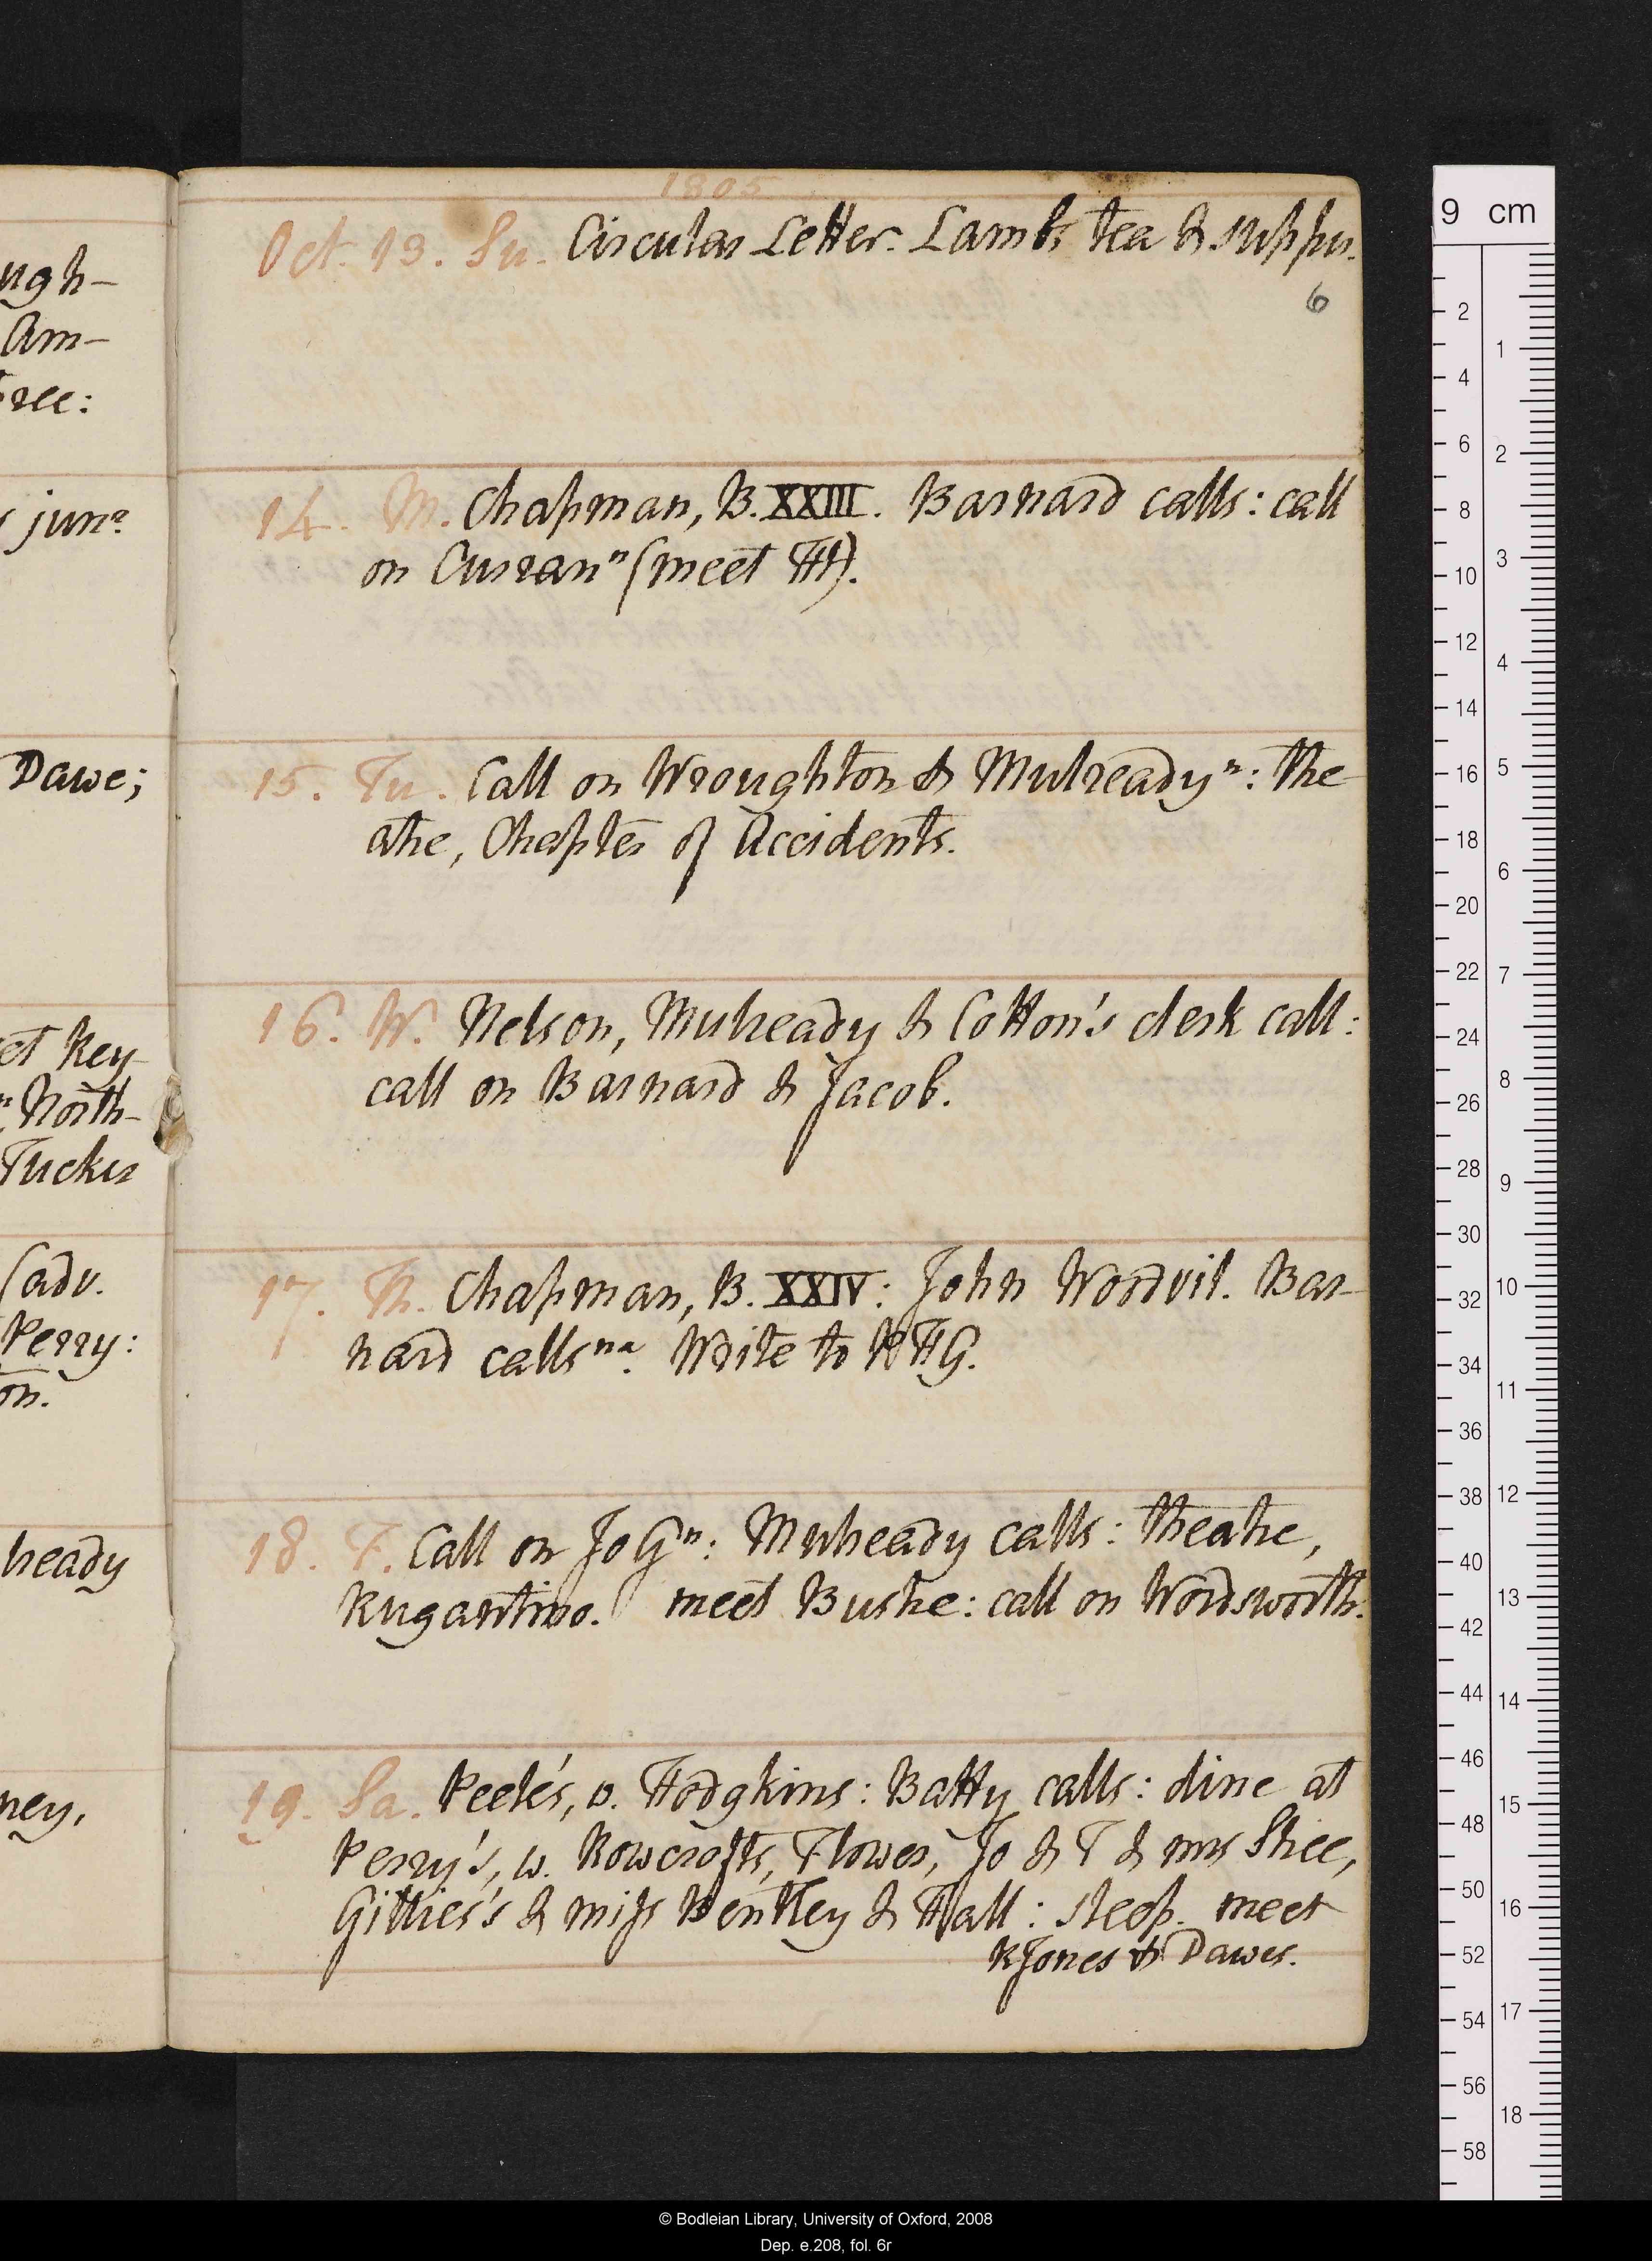 1805
Oct. 13. Su. Circular Letter. Lambs tea & supper.
6
14. M. Chapman, B. XXIII. Barnard calls: call
on Curran ⁿ (meet TH).
15. Tu. Call on Wroughton & Mulready ⁿ: the-
atre, Chapter of Accidents.
16. W. Nelson, Mulready & Cotton's clerk call:
call on Barnard & Jacob.
17. Th. Chapman, B. XXIV: John Woodvil. Bar-
nard calls ⁿᵃ. Write to PHG.
18. F. Call on Jo G ⁿ: Mulready calls: theatre,
Rugantino. meet Bushe: call on Wordsworth.
19. Sa. Peele's, v. Hodgkins: Batty calls: dine at
Perry's, w. Rowcrofts, Flower, Jo & T & mrs Shee,
Gillies's & miss Bentley & Hall: sleep. meet
RJones & Dawes.
ugh-
Am-
ree:
junʳ
Dawe;
et Key
ⁿ North-
Tucker
(adv.
Perry:
on.
lready
ney,
9 cm
2
4
6
8
10
12
14
16
18
20
22
24
26
28
30
32
34
36
38
40
42
44
46
48
50
52
54
56
58
1
2
3
4
5
6
7
8
9
10
11
12
13
14
15
16
17
18
© Bodleian Library, University of Oxford, 2008
Dep. e.208, fol. 6r